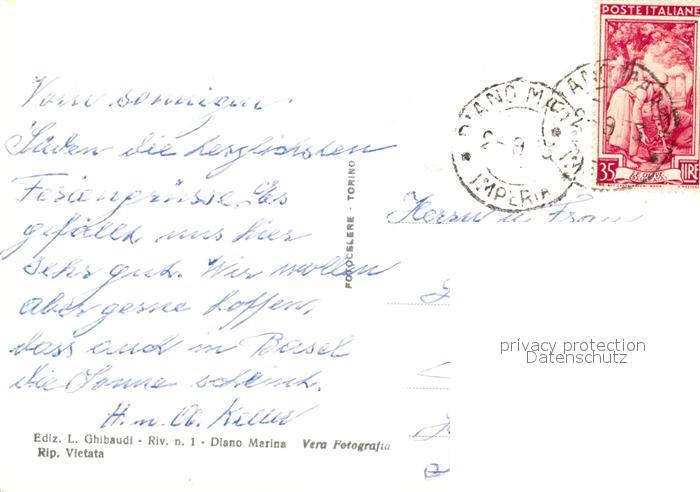 POSTE ITALIANE
DIANO MARINA
2-9
IMPERIA
35 LIRE
Vom sonnigen
Süden die herzlichsten
Feriengrüsse. Es
gefällt uns hier
sehr gut. Wir wollen
aber gerne hoffen,
dass auch in Basel
die Sonne scheint.
H. u. A. Keller
Herrn u. Frau
FOTOCELERE - TORINO
privacy protection
Datenschutz
Ediz. L. Ghibaudi - Riv. n. 1 - Diano Marina Vera Fotografia
Rip. Vietata